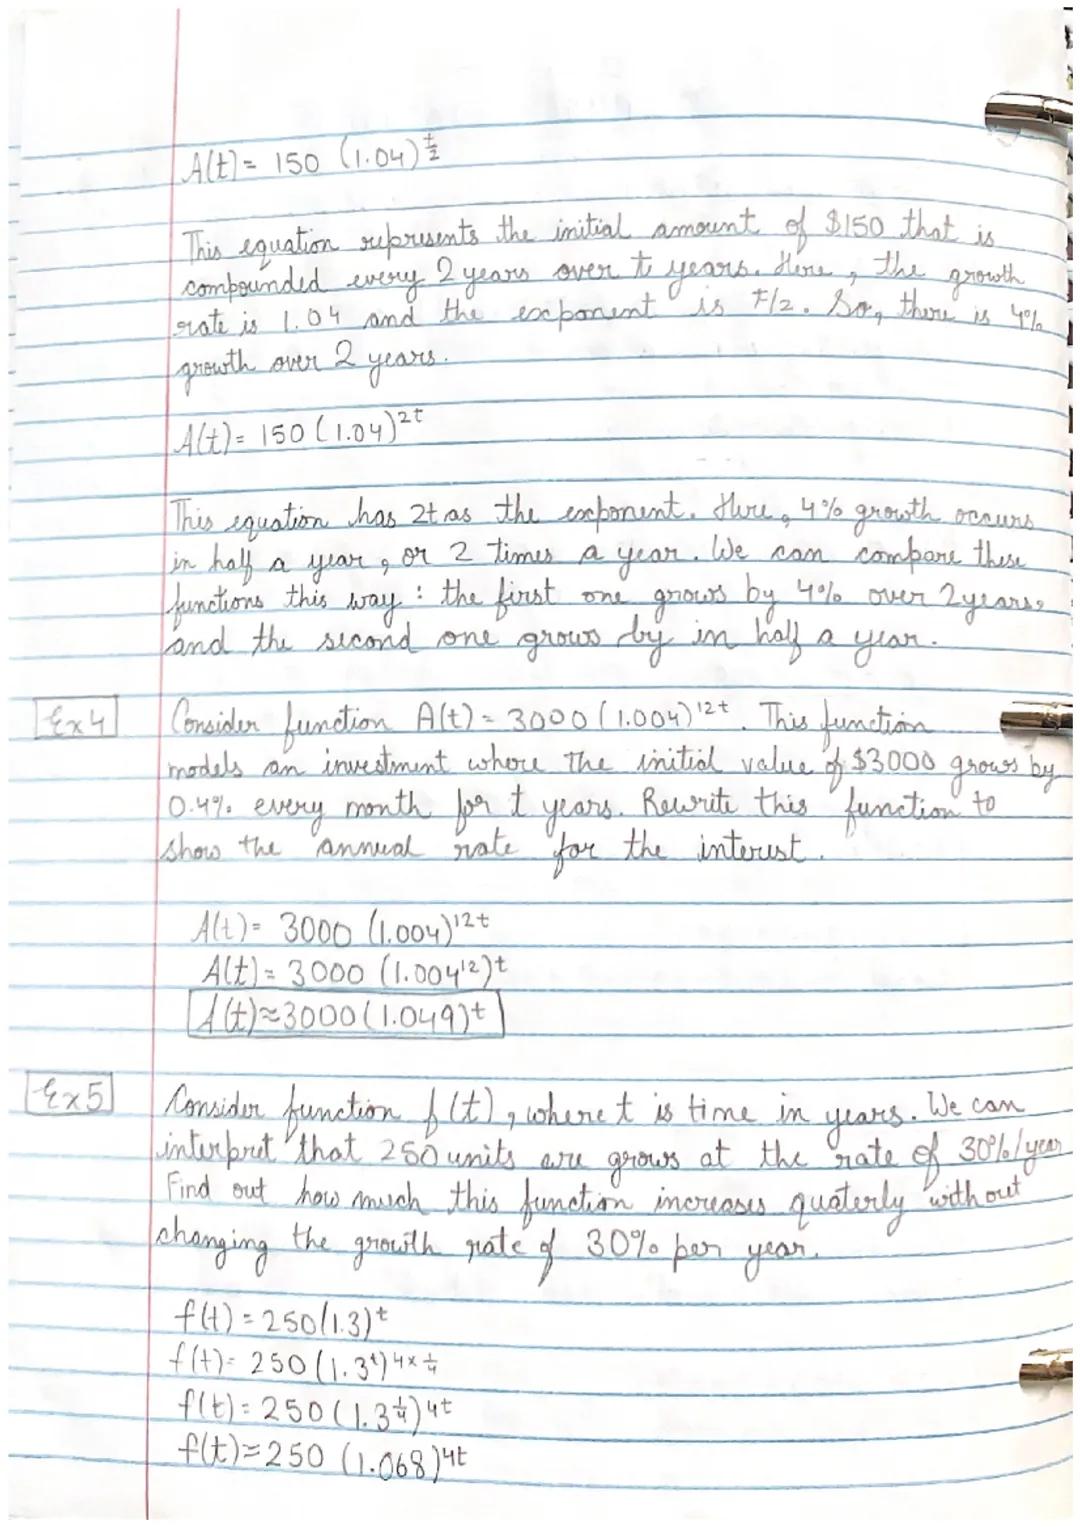 A(t) = 150 (1.04)^(t/2)
This equation represents the initial amount of $150 that is
compounded every 2 years over t years. Here, the growth
rate is 1.04 and the exponent is t/2. So, there is 4%
growth over 2 years.
A(t) = 150 (1.04)^2t
This equation has 2t as the exponent. Here, 4% growth occurs
in half a year, or 2 times a year. We can compare these
functions this way: the first one grows by 4% over 2 years,
and the second one grows by in half a year.
Ex 4 Consider function A(t) = 3000 (1.004)^12t. This function
models an investment where the initial value of $3000 grows by
0.4% every month for t years. Rewrite this function to
show the annual rate for the interest.
A(t) = 3000 (1.004)^12t
A(t) = 3000 (1.004^12)^t
A(t) ≈ 3000 (1.049)^t
Ex 5 Consider function f(t), where t is time in years. We can
interpret that 250 units are grows at the rate of 30%/year
Find out how much this function increases quaterly without
changing the growth rate of 30% per year.
f(t) = 250(1.3)^t
f(t) = 250 (1.3^t)^(4×1/4)
f(t) = 250 (1.3^(1/4))^4t
f(t) ≈ 250 (1.068)^4t